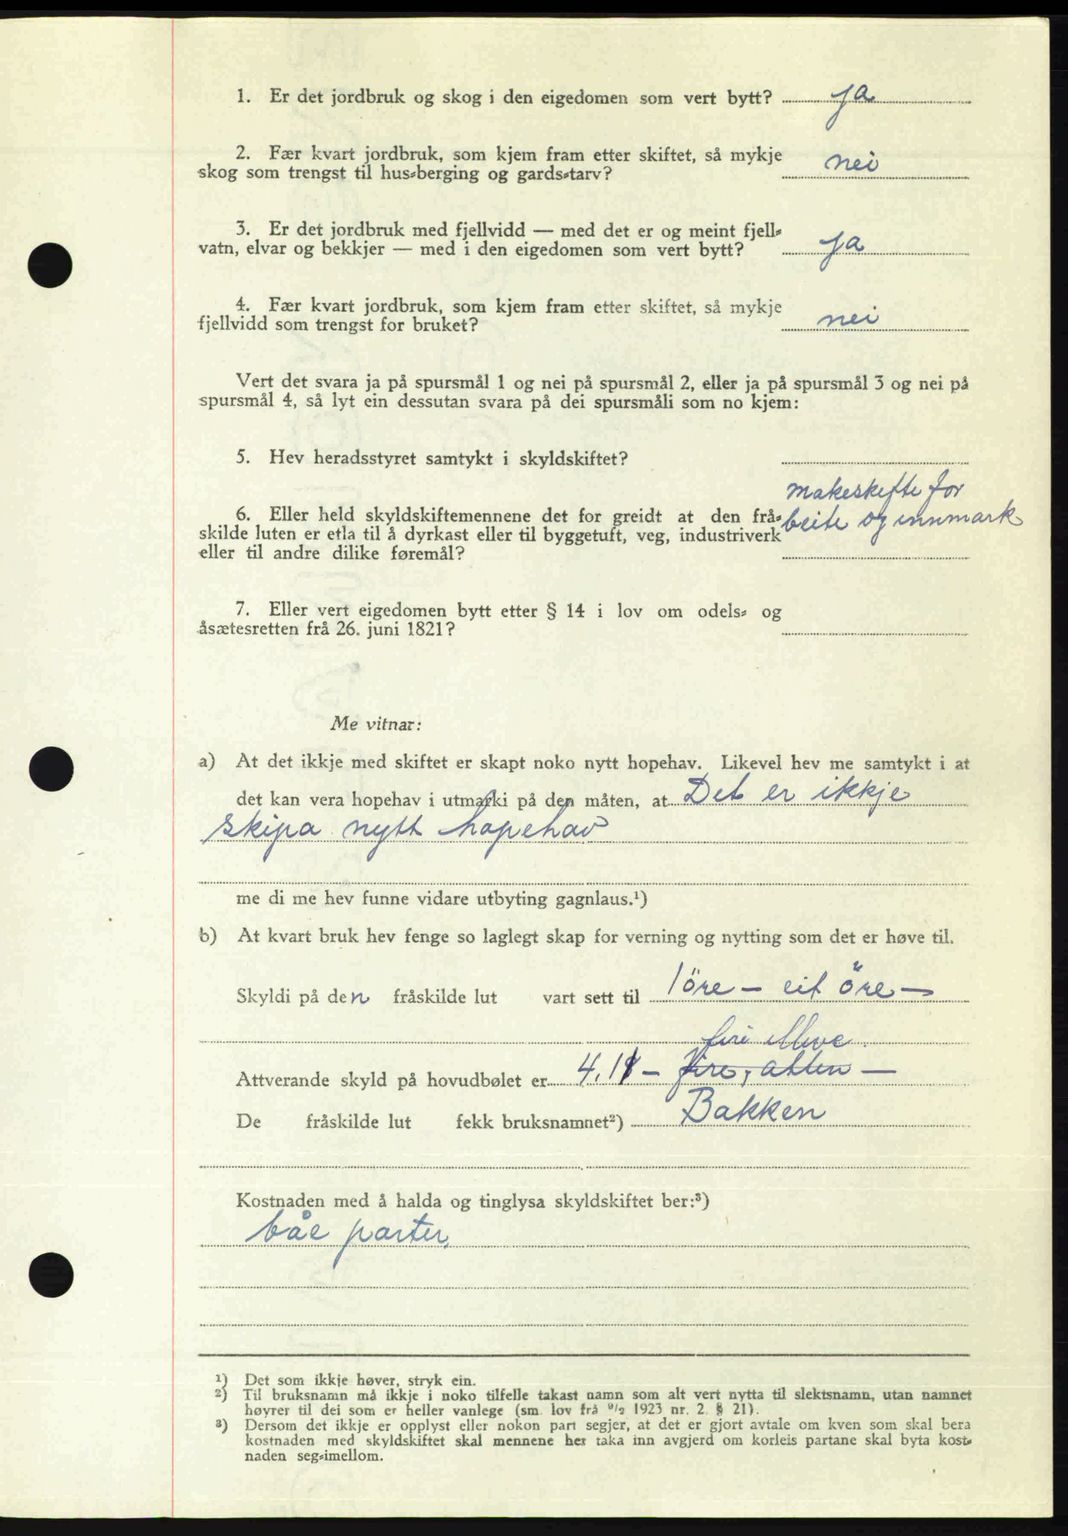 1. Er det jordbruk og skog i den eigedomen som vert bytt? ja
2. Fær kvart jordbruk, som kjem fram etter skiftet, så mykje
skog som trengst til hus-berging og gards-tarv? nei
3. Er det jordbruk med fjellvidd — med det er og meint fjell-
vatn, elvar og bekkjer — med i den eigedomen som vert bytt? ja
4. Fær kvart jordbruk, som kjem fram etter skiftet, så mykje
fjellvidd som trengst for bruket? nei
Vert det svara ja på spursmål 1 og nei på spursmål 2, eller ja på spursmål 3 og nei på
spursmål 4, så lyt ein dessutan svara på dei spursmåli som no kjem:
5. Hev heradsstyret samtykt i skyldskiftet?
makeskifte for
6. Eller held skyldskiftemennene det for greidt at den frå- beite og innmark
skilde luten er etla til å dyrkast eller til byggetuft, veg, industriverk
eller til andre dilike føremål?
7. Eller vert eigedomen bytt etter § 14 i lov om odels- og
åsætesretten frå 26. juni 1821?
Me vitnar:
a) At det ikkje med skiftet er skapt noko nytt hopehav. Likevel hev me samtykt i at
det kan vera hopehav i utmarki på den måten, at Det er ikkje
skipa nytt hopehav
me di me hev funne vidare utbyting gagnlaus.¹)
b) At kvart bruk hev fenge so laglegt skap for verning og nytting som det er høve til.
Skyldi på den fråskilde lut vart sett til 1 öre — eit öre —
firi elleve.
Attverande skyld på hovudbølet er 4.11 — fire, atten —
De fråskilde lut fekk bruksnamnet²) Bakken
Kostnaden med å halda og tinglysa skyldskiftet ber:³)
båe parter.
¹) Det som ikkje høver, stryk ein.
²) Til bruksnamn må ikkje i noko tilfelle takast namn som alt vert nytta til slektsnamn, utan namnet
høyrer til dei som er heller vanlege (sm. lov frå ⁹/₂ 1923 nr. 2. § 21).
³) Dersom det ikkje er opplyst eller nokon part segjer, at det er gjort avtale om kven som skal bera
kostnaden med skyldskiftet skal mennene her taka inn avgjerd om korleis partane skal byta kost-
naden seg-imellom.